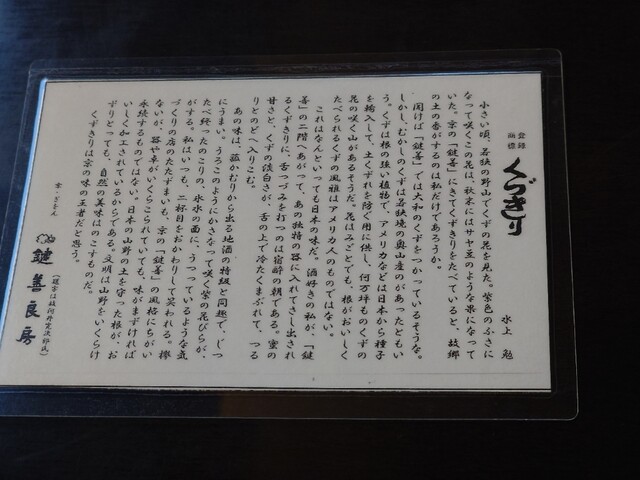 登録
商標
くづきり
水上 勉
小さい頃、若狭の野山でくずの花を見た。紫色のふさに
なって咲くこの花は、秋末にはサヤ豆のような果になって
いた。京の「鍵善」にきてくずきりをたべていると、故郷
の土の香がするのは私だけであろうか。
聞けば「鍵善」では大和のくずをつかっているそうな。
しかし、むかしのくずは若狭境の奥山産のがあったともい
う。くずは根の強い植物で、アメリカなどは日本から種子
を輸入して、土くずれを防ぐ用に供し、何万坪ものくずの
花の咲く山があるそうだ。花はみごとでも、根がおいしく
たべられるくずの風雅はアメリカ人のものではない。
これはなんといっても日本の味だ。酒好きの私が、「鍵
善」の二階へあがって、あの独特の器に入れてさし出され
るくずきりに、舌つづみを打つのは宿酔の朝である。蜜の
甘さと、くずの淡白さが、舌の上で冷たくまぶれて、つる
りとのどへ入りこむ。
あの味は、菰かむりから出る地酒の特級と同趣で、じつ
にうまい。うろこのようにかさなって咲く紫の花びらが、
たべ終ったのこりの、氷水の面に、うつっているような気
がする。私はいつも、二杯目をおかわりして笑われる。欅
づくりの店のたたずまいも、京の「鍵善」の風格にちがい
ないが、器や卓がいくらこられていても、味がまずければ
永続するものではない。日本の山野の土を守った根が、お
いしく加工されているからである。文明は山野をいくらけ
ずりとっても、自然の美味はのこすものだ。
くずきりは京の味の王者だと思う。
京・ぎをん
鍵善良房
(題字は故河井寛次郎氏)